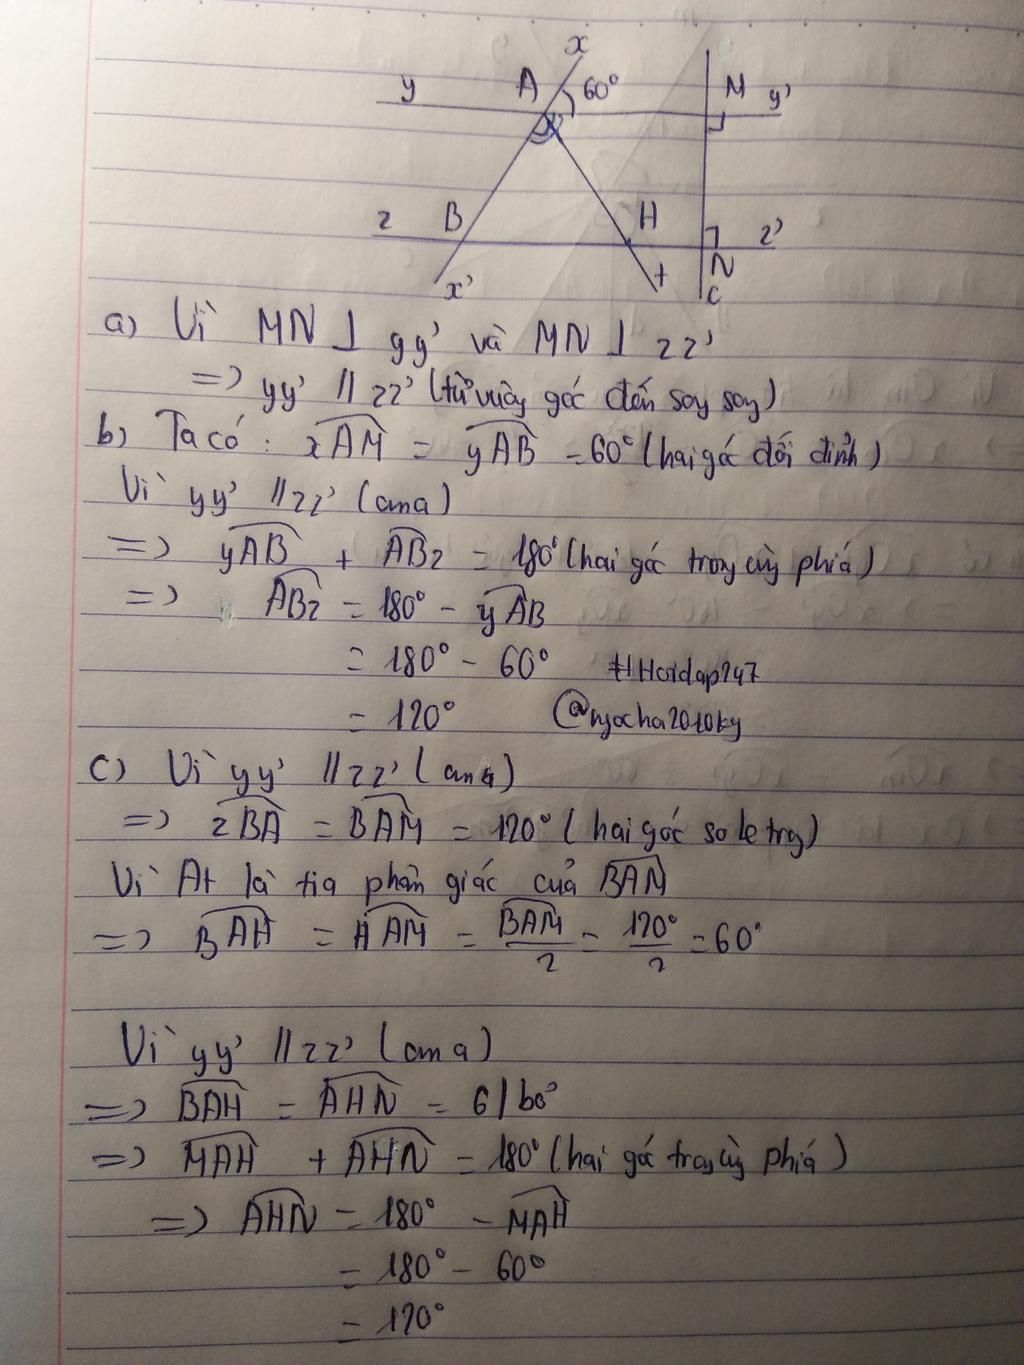 x
y A 60° M y'
z B H z'
x' t N
c
a) Vì MN ⊥ yy' và MN ⊥ zz'
=> yy' // zz' (từ vuông góc đến song song)
b) Ta có: xAM = yAB = 60° (hai góc đối đỉnh)
Vì yy' // zz' (cma)
=> yAB + ABz = 180° (hai góc trong cùng phía)
=> ABz = 180° - yAB
= 180° - 60° #Hoidap247
= 120° @ngocha2010ky
c) Vì yy' // zz' (cma)
=> zBA = BAM = 120° (hai góc so le trg)
Vì At là tia phân giác của BAM
=> BAH = HAM = BAM/2 = 120°/2 = 60°
Vì yy' // zz' (cma)
=> BAH = AHN =
=> MAH + AHN = 180° (hai góc trong cùng phía)
=> AHN = 180° - MAH
= 180° - 60°
= 120°